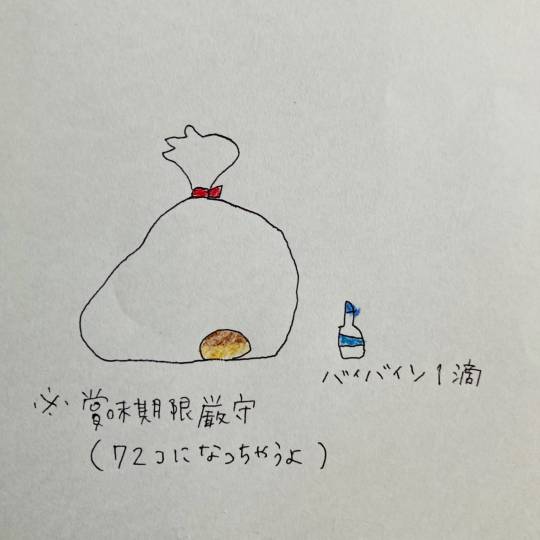 バイバイン1滴
※賞味期限厳守
(72コになっちゃうよ)